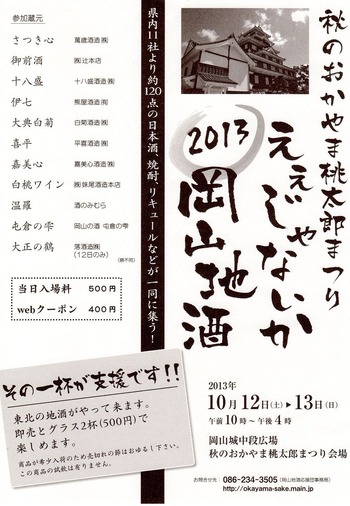 秋のおかやま桃太郎まつり
ええじゃないか
2013
岡山地酒
県内11社より約120点の日本酒、焼酎、リキュールなどが一同に集う!
参加蔵元
さつき心 萬歳酒造㈱
御前酒 ㈱辻本店
十八盛 十八盛酒造㈱
伊七 熊屋酒造㈲
大典白菊 白菊酒造㈱
喜平 平喜酒造㈱
嘉美心 嘉美心酒造㈱
白桃ワイン ㈱妹尾酒造本店
温羅 酒のみむら
屯倉の雫 岡山の酒 屯倉の雫
大正の鶴 落酒造㈱
(12日のみ)
(順不同)
当日入場料 500円
webクーポン 400円
その一杯が支援です!!
東北の地酒がやって来ます。
即売とグラス2杯(500円)で
楽しめます。
商品が希少入荷のため売切れの節はおゆるし下さい。
この商品の試飲は有りません。
2013年
10月12日(土)▶13日(日)
午前10時〜午後4時
岡山城中段広場
秋のおかやま桃太郎まつり会場
お問合せ先:086-234-3505(岡山地酒応援団事務局)
http://okayama-sake.main.jp